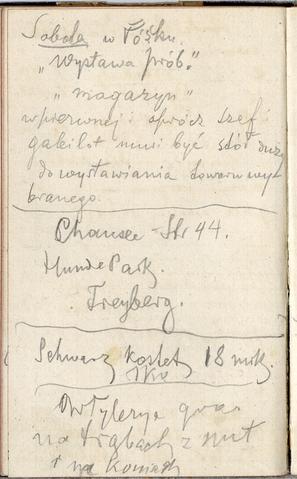 Sobota w Łóżku.
„Wystawa prób."
„magazyn"
w pierwszej i oprócz szef
gabilot musi być stół duży
do wystawiania towaru wy-
branego.
Chaussee-Str 44.
Hunde Park.
Freyberg.
Schwarz kostet 18 mrk.
Artylerye grac
na trąbach z nut
i na koniach